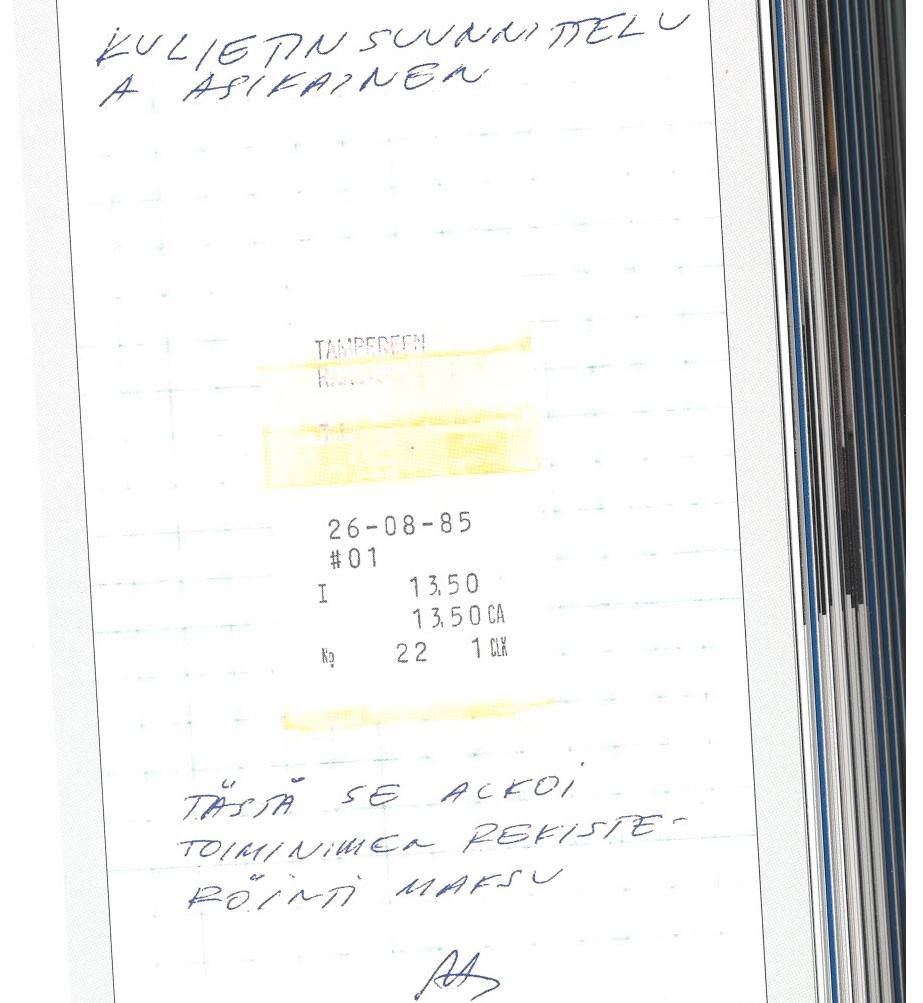 KULJETINSUUNNITTELU
A ASIKAINEN
TAMPEREEN
26-08-85
#01
I 13.50
13.50 CA
No 22 1 CLK
TÄSTÄ SE ALKOI
TOIMINIMEN REKISTE-
RÖINTI MAKSU